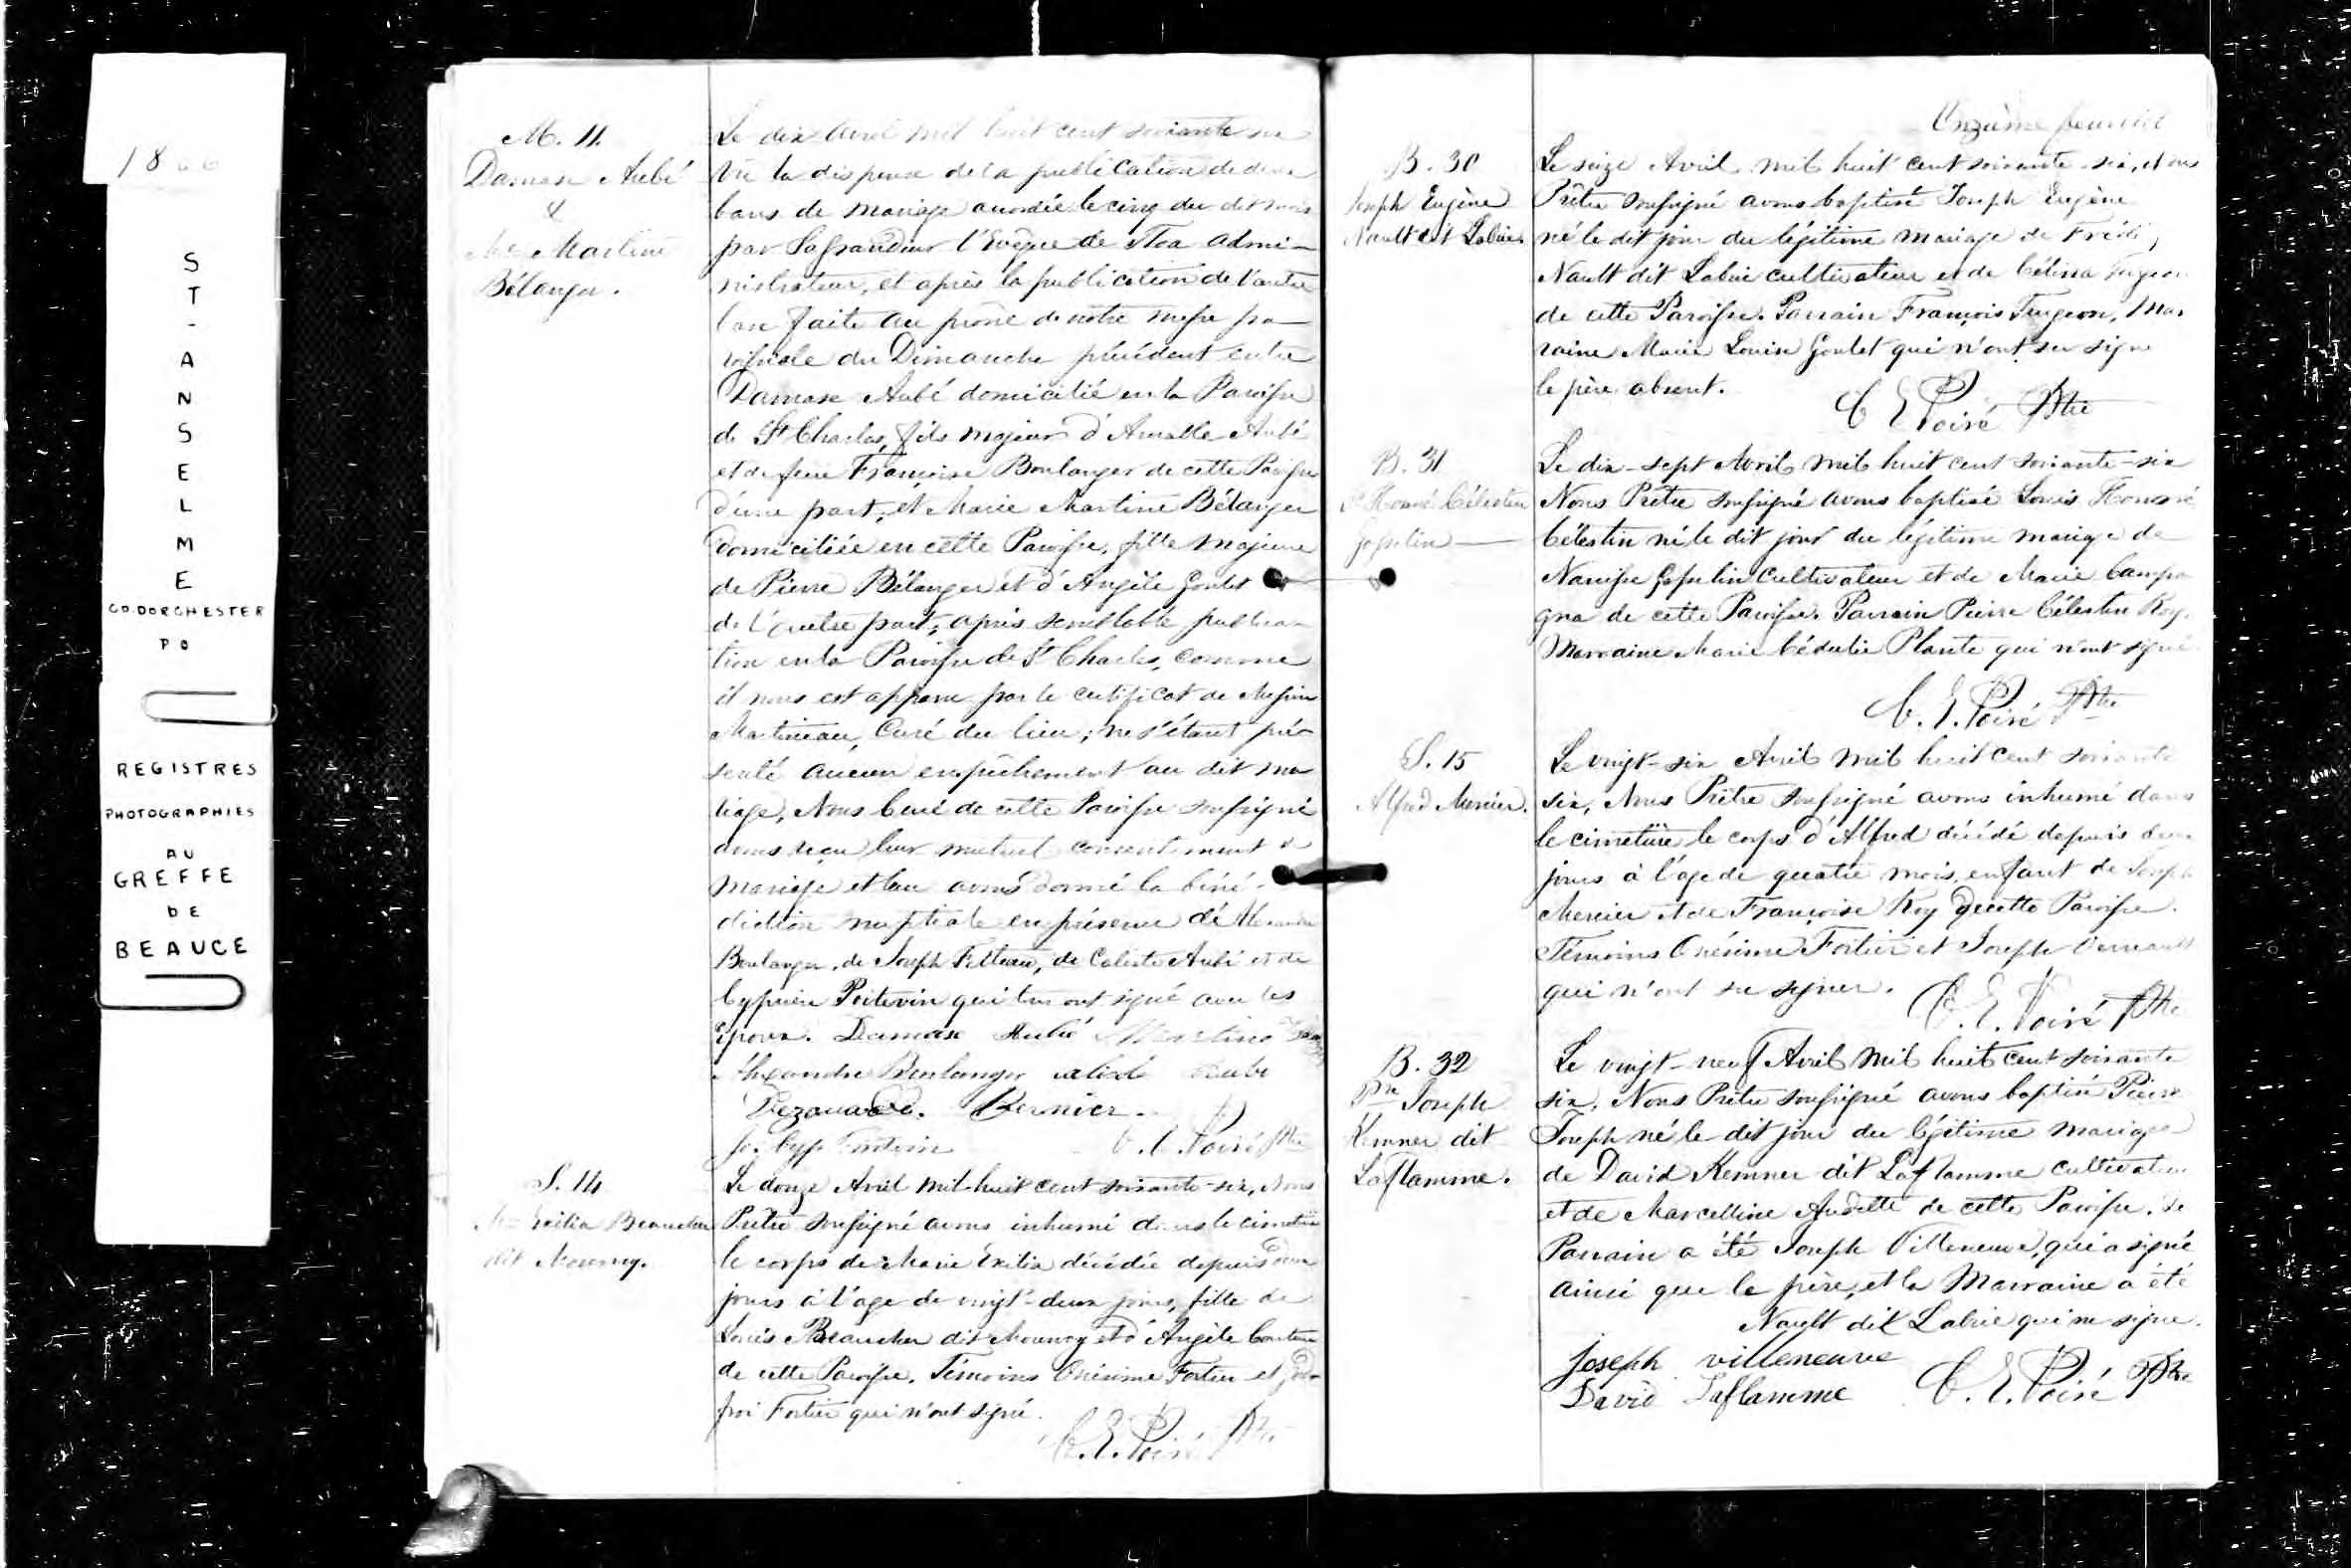 1866
ST-ANSELME
CO. DORCHESTER
P Q
REGISTRES
PHOTOGRAPHIES
AU
GREFFE
DE
BEAUCE
M. 11.
Damase Aubé
&
Martine
Bélanger.
Le dix Avril mil huit cent soixante six
Vu la dispense de la publication de deux
bans de mariage accordée le cinq du dit mois
par Sa Grandeur l'Evêque de Tloa Admi-
nistrateur, et après la publication de l'autre
ban faite au prône de notre messe pa-
roissiale du Dimanche précédent entre
Damase Aubé domicilié en la Paroisse
de St Charles, fils majeur d'Amable Aubé
et de feue Françoise Boulanger de cette Paroisse
d'une part, et Marie Martine Bélanger
domiciliée en cette Paroisse, fille majeure
de Pierre Bélanger et d'Angèle Goulet
de l'autre part, après semblable publica-
tion en la Paroisse de St Charles, comme
il nous est apparu par le certificat de Messire
Martineau, Curé du lieu; ne s'étant pré-
senté aucun empêchement au dit ma-
riage, Nous Curé de cette Paroisse soussigné
avons reçu leur mutuel consentement de
mariage et leur avons donné la béné-
diction nuptiale en présence de Alexandre
Boulanger, de Joseph Feuteau, de Calixte Aubé et de
Cyprien Poitevin qui tous ont signé avec les
époux. Damase Aubé Martine
Alexandre Boulanger Aubé
Bernier.
C. E. Poiré Ptre
S. 14
Exilia Beaucher
dit Morency.
Le douze Avril mil-huit cent soixante-six, Nous
Prêtre soussigné avons inhumé dans le cimetière
le corps de Marie Exilia décédée depuis deux
jours à l'age de vingt-deux jours, fille de
Louis Beaucher dit Morency et d'Angèle Couture
de cette Paroisse. Témoins Onésime Fortier et God-
froi Fortier qui n'ont signé.
C. E. Poiré Ptre
Onzième feuillet
B. 30
Joseph Eugène
Nault dit Labrie
Le seize Avril mil huit cent soixante-six, Nous
Prêtre soussigné avons baptisé Joseph Eugène
né le dit jour du légitime mariage de Frédéric
Nault dit Labrie cultivateur et de Célina Turgeon
de cette Paroisse. Parrain François Turgeon, Mar-
raine Marie Louise Goulet qui n'ont su signer
le père absent.
C E Poiré Ptre
B. 31
Ls Honoré Célestin
Gosselin
Le dix-sept Avril mil huit cent soixante-six
Nous Prêtre soussigné avons baptisé Louis Honoré
Célestin né le dit jour du légitime mariage de
Narcisse Gosselin cultivateur et de Marie Campa-
gna de cette Paroisse. Parrain Pierre Célestin Roy.
Marraine Marie Cédulie Plante qui n'ont signé.
C. E. Poiré Ptre
S. 15
Alfred Mercier.
Le vingt-six Avril mil huit cent soixante
six, Nous Prêtre soussigné avons inhumé dans
le cimetière le corps d'Alfred décédé depuis deux
jours à l'age de quatre mois, enfant de Joseph
Mercier et de Françoise Roy de cette Paroisse.
Témoins Onésime Fortier et Joseph
qui n'ont su signer.
C. E. Poiré Ptre
B. 32
Pre Joseph
Kemner dit
Laflamme.
Le vingt-neuf Avril mil huit cent soixante
six, Nous Prêtre soussigné avons baptisé Pierre
Joseph né le dit jour du légitime mariage
de David Kemner dit Laflamme cultivateur
et de Marcelline Audette de cette Paroisse. Le
Parrain a été Joseph Villeneuve, qui a signé
ainsi que le père, et la Marraine a été
Nault dit Labrie qui ne signe.
Joseph villeneuve
David Laflamme
C. E. Poiré Ptre